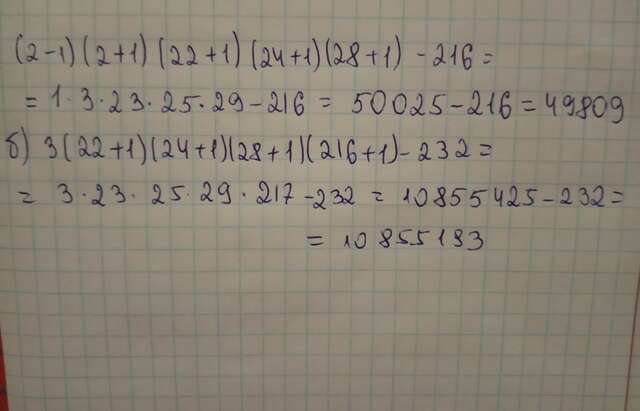 (2-1)(2+1)(22+1)(24+1)(28+1) - 216 =
= 1·3·23·25·29 - 216 = 50025 - 216 = 49809
б) 3(22+1)(24+1)(28+1)(216+1) - 232 =
= 3·23·25·29·217 - 232 = 10855425 - 232 =
= 10855193